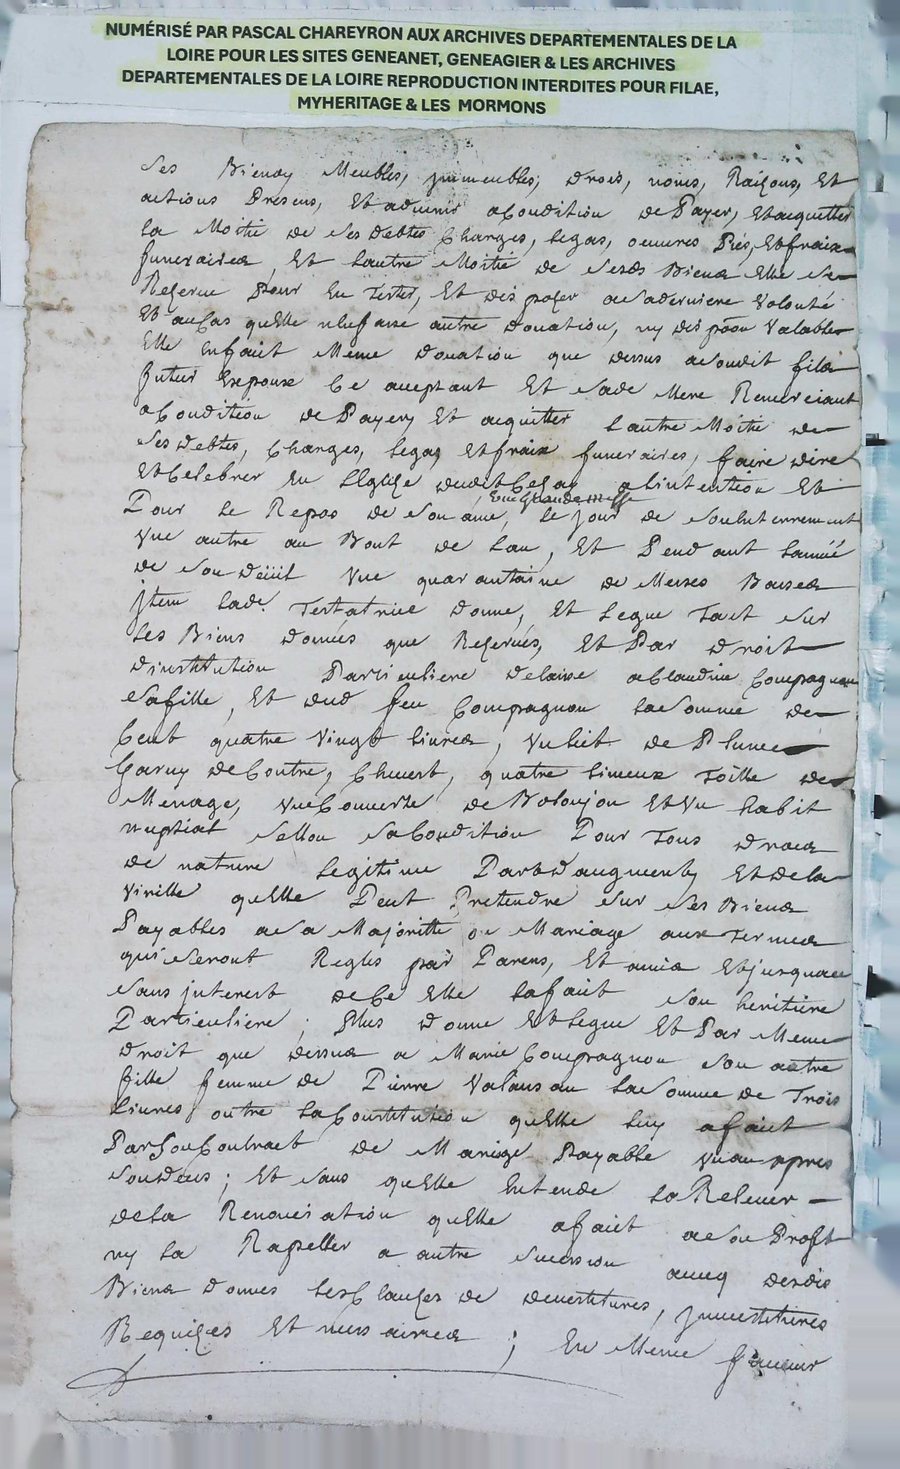 NUMÉRISÉ PAR PASCAL CHAREYRON AUX ARCHIVES DEPARTEMENTALES DE LA
LOIRE POUR LES SITES GENEANET, GENEAGIER & LES ARCHIVES
DEPARTEMENTALES DE LA LOIRE REPRODUCTION INTERDITES POUR FILAE,
MYHERITAGE & LES MORMONS
Ses Biens Meubles, jmmeubles, drois, noms, Raisons, Et
actions Presens, Et advenir acondition de Payer, Et acquitter
La Moitié de Ses debtes Charges, Legas, oeuvres Pies, Et fraix
funeraires, Et Lautre Moitié de Sesds Biens Elle Se
Reserve Pour En Tester, Et disposer a Saderniere Volonté
Et aucas quelle nefasse autre donation, ny dispōōn Valable
Elle Enfait Meme donation que dessus aSondit fils
futur Expoux Ce acceptant Et Sade Mere Remerciant
aCondition de Payer Et acquitter Lautre Moitié de
Ses debtes, Charges, Legas, Et fraix funeraires, faire dire
Et Celebrer En LEglise dudit alintention Et
Pour Le Repos de Son ame, Une Grande messe Le jour de Son Enterrement
Vne autre au Bout de Lan, Et Pendant Lannée
de Son deüil Vne quarantaine de Messes Basses
jtem Lade Testatrice donne, Et Legue Tant Sur
Les Biens donnés que Reservés, Et Par droit
dinstitution Particuliere delaisse aClaudine Compagnon
Safille, Et dud feu Compagnon LaSomme de
Cent quatre Vingt Livres, Vn Lict de Plume
Garny de Coutre, Chevet, quatre Linceux Toille de
Menage, Vne Couverte de Et Vn habit
nuptial Sellon SaCondition Pour Tous droits
de nature Legitime Part daugment, Et de la
Virille quelle Peut Pretendre Sur Ses Biens
Payables a Sa Majoritte ou Mariage aux Termes
qui Seront Regles par Parens, Et amis Et jusques
Sans jnterest de Ce Elle Lafait Son heritiere
Particuliere; Plus donne Et Legue Et Par Meme
droit que dessus a Marie Compagnon Son autre
fille femme de Pierre LaSomme de Trois
Livres outre LaConstitution quelle Luy afait
Par Son Contract de Mariage Payable Vnan appres
Son deces; Et Sans quelle Entende La Relever
de La Renonciation quelle afait a Son Profit
ny La Rapeller a autre Sucession avecq desdis
Biens donnes Les Clauses de devestitures, jnvestitures
Requises Et nessaires; En Meme faveur